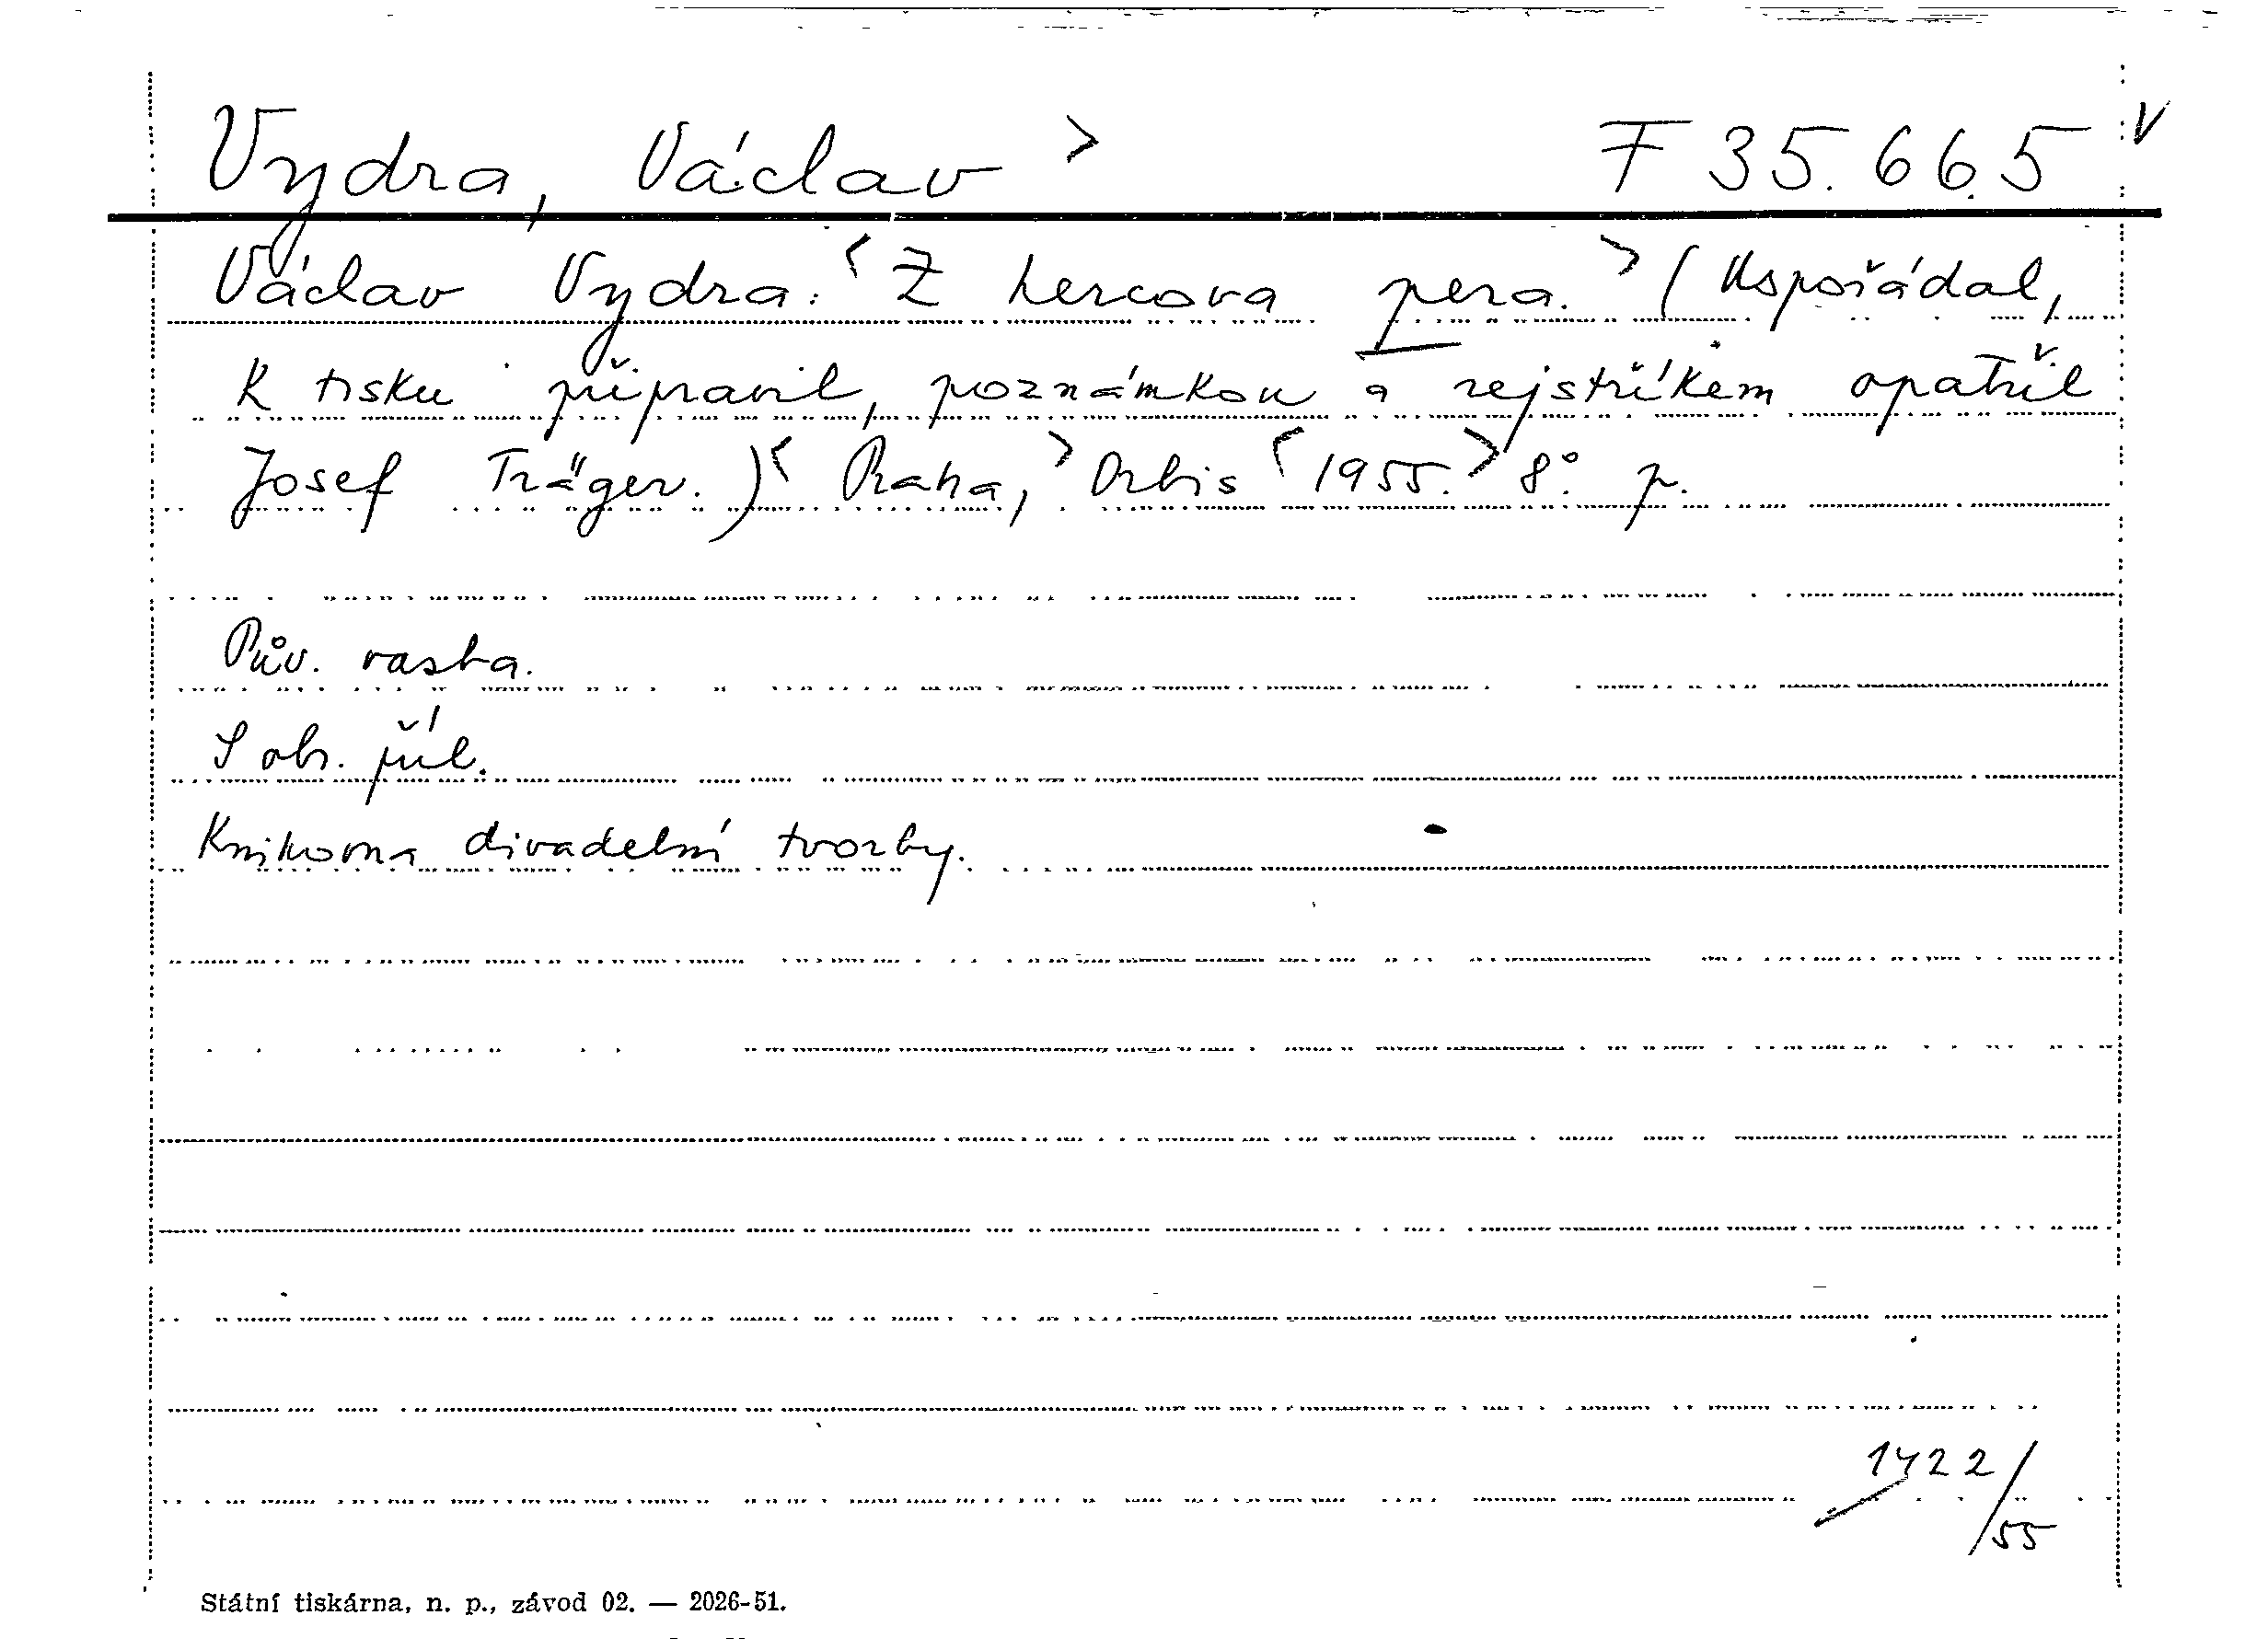 Vydra, Václav > F 35.665 v
Václav Vydra: < Z hercova pera. > (Uspořádal,
k tisku připravil, poznámkou a rejstříkem opatřil
Josef Träger.) < Praha, > Orbis < 1955. > 8°. p.
Pův. vazba.
S obr. příl.
Knihovna divadelní tvorby.
1422/55
Státní tiskárna, n. p., závod 02. — 2026-51.